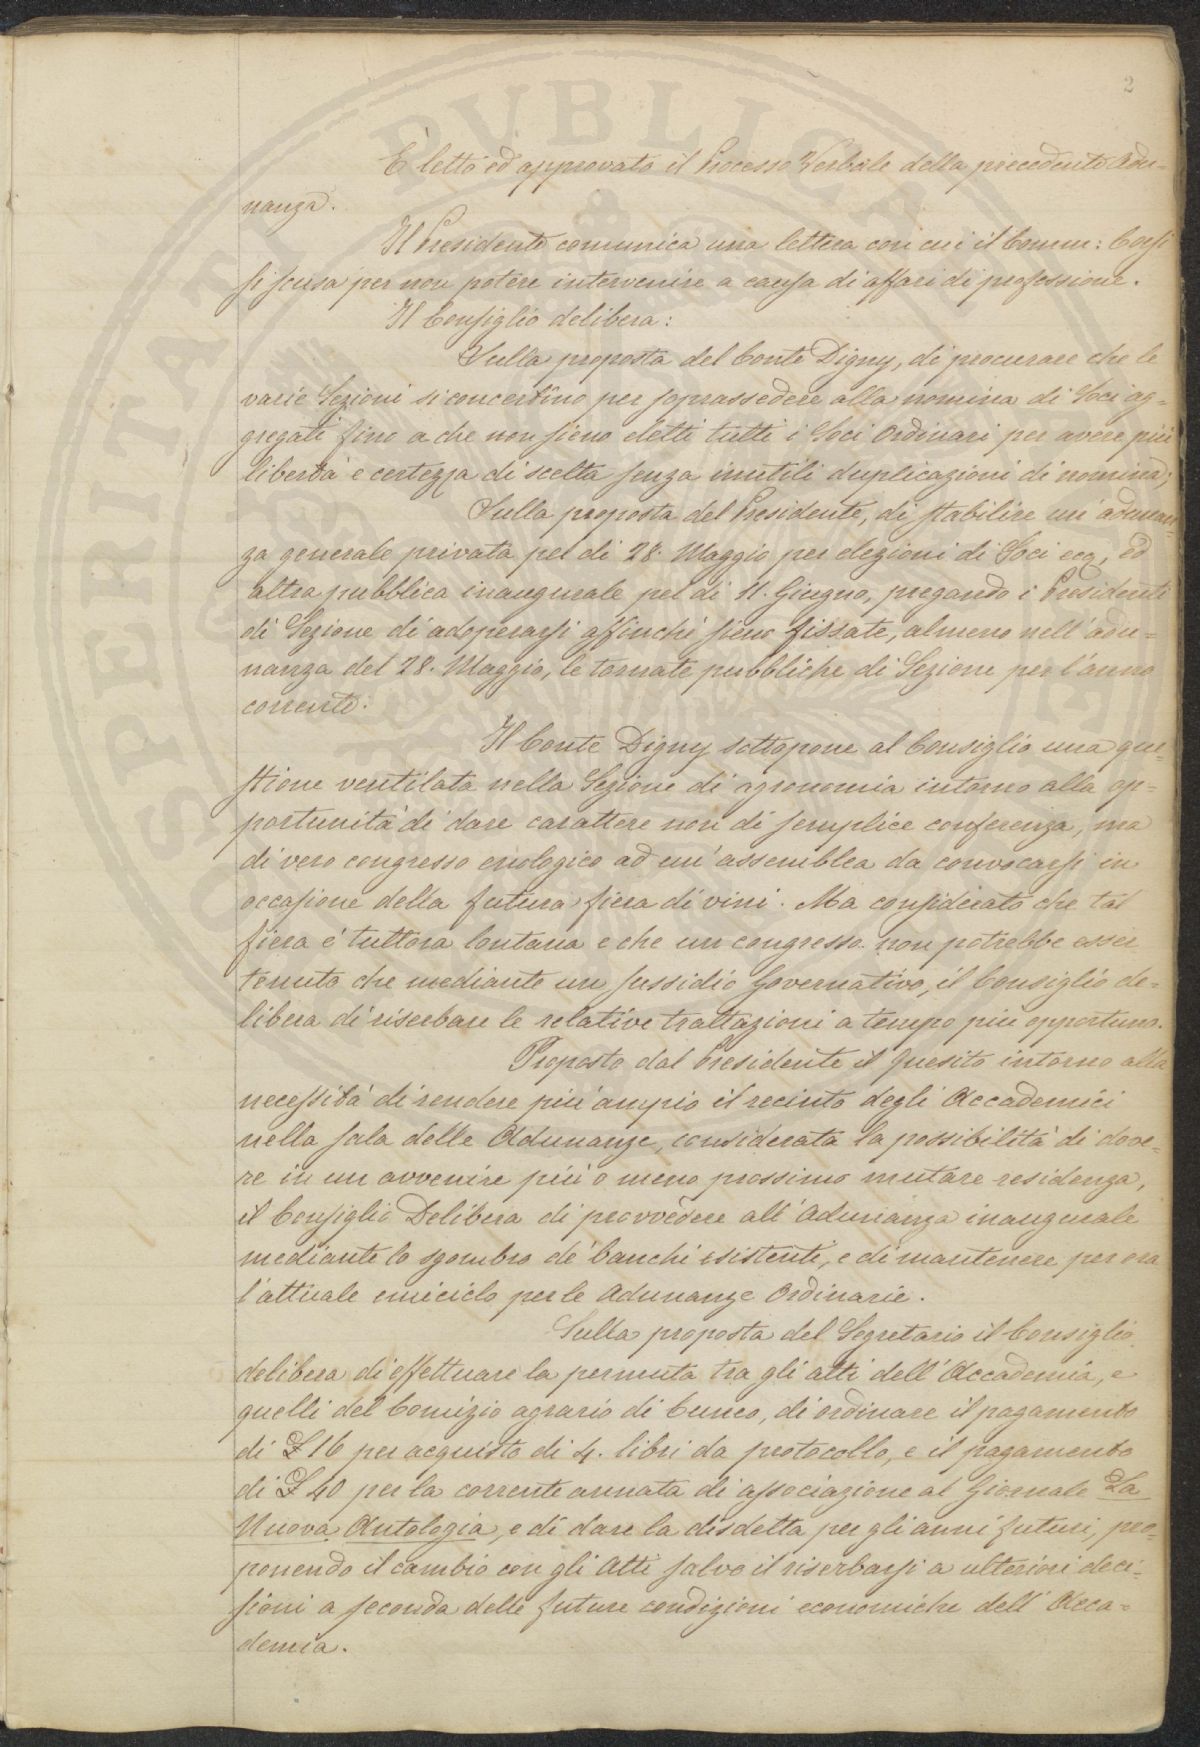 2
È letto ed approvato il Processo Verbale della precedente Adu-
nanza.
Il Presidente comunica una lettera con cui il Comm: Corsi
si scusa per non potere intervenire a causa di affari di professione.
Il Consiglio delibera:
Sulla proposta del Conte Digny, di procurare che le
varie Sezioni si concertino per soprassedere alla nomina di Soci ag-
gregati fino a che non sieno eletti tutti i Soci Ordinari per avere più
libertà e certezza di scelta senza inutili duplicazioni di nomina;
Sulla proposta del Presidente, di stabilire un'adunan-
za generale privata pel dì 28. Maggio per elezioni di Soci ecc, ed
altra pubblica inaugurale pel dì 11. Giugno, pregando i Presidenti
di Sezione di adoperarsi affinchè sieno fissate, almeno nell'adu-
nanza del 28. Maggio, le tornate pubbliche di Sezione per l'anno
corrente:
Il Conte Digny sottopone al Consiglio una que-
stione ventilata nella Sezione di agronomia intorno alla op-
portunità di dare carattere non di semplice conferenza, ma
di vero congresso enologico ad un'assemblea da convocarsi in
occasione della futura fiera di vini. Ma considerato che tal
fiera è tuttora lontana e che un congresso non potrebbe esser
tenuto che mediante un sussidio Governativo, il Consiglio de-
libera di riserbare le relative trattazioni a tempo più opportuno.
Proposto dal Presidente il quesito intorno alla
necessità di rendere più ampio il recinto degli Accademici
nella sala delle Adunanze, considerata la possibilità di dove-
re in un avvenire più o meno prossimo mutare residenza,
il Consiglio Delibera di provvedere all'Adunanza inaugurale
mediante lo sgombro de' banchi esistenti, e di mantenere per ora
l'attuale emiciclo per le Adunanze Ordinarie.
Sulla proposta del Segretario il Consiglio
delibera di effettuare la permuta tra gli atti dell'Accademia, e
quelli del Comizio agrario di Cuneo, di ordinare il pagamento
di £ 16 per acquisto di 4. libri da protocollo, e il pagamento
di £ 40 per la corrente annata di associazione al Giornale La
Nuova Antologia, e di dare la disdetta per gli anni futuri, pro-
ponendo il cambio con gli Atti salvo il riserbarsi a ulteriori deci-
sioni a seconda delle future condizioni economiche dell'Acca-
demia.